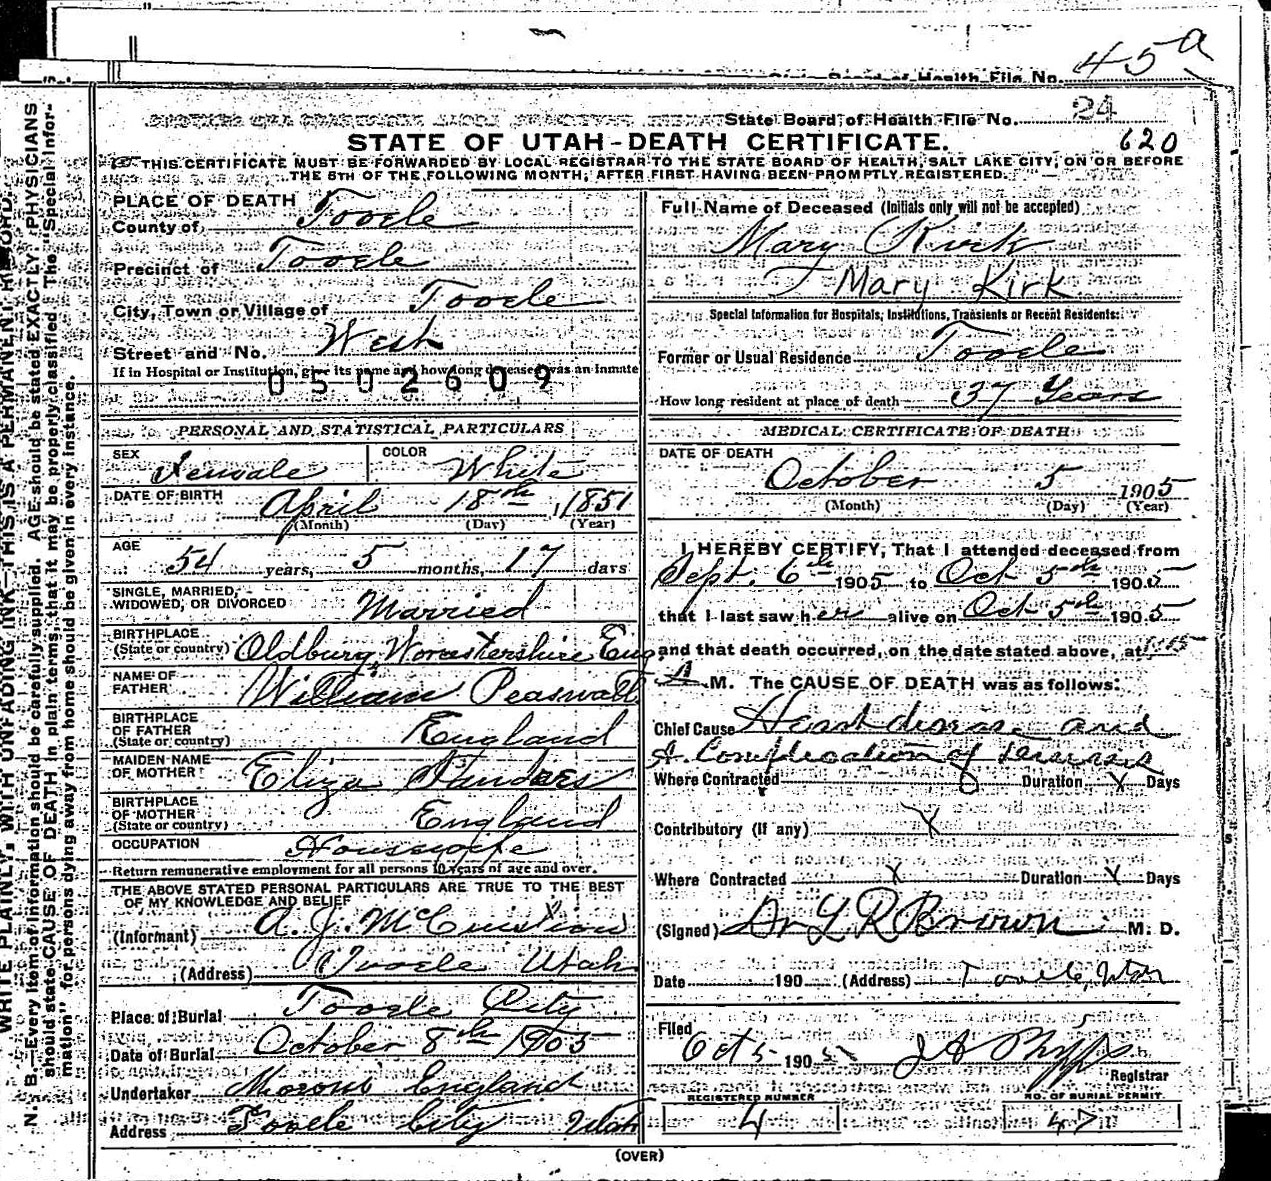 State Board of Health File No. 45a
State Board of Health File No. 24
STATE OF UTAH-DEATH CERTIFICATE. 620
THIS CERTIFICATE MUST BE FORWARDED BY LOCAL REGISTRAR TO THE STATE BOARD OF HEALTH, SALT LAKE CITY, ON OR BEFORE
THE 5TH OF THE FOLLOWING MONTH, AFTER FIRST HAVING BEEN PROMPTLY REGISTERED.
WRITE PLAINLY, WITH UNFADING INK—THIS IS A PERMANENT RECORD.
N. B.—Every item of information should be carefully supplied. AGE should be stated EXACTLY. PHYSICIANS
should state CAUSE OF DEATH in plain terms, that it may be properly classified. The "Special Infor-
mation" for persons dying away from home should be given in every instance.
PLACE OF DEATH
County of Tooele
Precinct of Tooele
City, Town or Village of Tooele
Street and No. West
If in Hospital or Institution, give its name and how long deceased was an Inmate
0502609
PERSONAL AND STATISTICAL PARTICULARS
SEX Female COLOR White
DATE OF BIRTH April 18th, 1851
(Month) (Day) (Year)
AGE 54 years, 5 months, 17 days
SINGLE, MARRIED,
WIDOWED, OR DIVORCED Married
BIRTHPLACE
(State or country) Oldburg, Worcestershire Eng
NAME OF
FATHER William Peasnall
BIRTHPLACE
OF FATHER
(State or country) England
MAIDEN NAME
OF MOTHER Eliza
BIRTHPLACE
OF MOTHER
(State or country) England
OCCUPATION Housewife
Return remunerative employment for all persons 10 years of age and over.
THE ABOVE STATED PERSONAL PARTICULARS ARE TRUE TO THE BEST
OF MY KNOWLEDGE AND BELIEF
(Informant) A. J. McCuistion
(Address) Tooele Utah
Place of Burial Tooele City
Date of Burial October 8th 1905
Undertaker Moroni England
Address Tooele City Utah
Full Name of Deceased (Initials only will not be accepted)
Mary Kirk
Mary Kirk
Special Information for Hospitals, Institutions, Transients or Recent Residents:
Former or Usual Residence Tooele
How long resident at place of death 37 Years
MEDICAL CERTIFICATE OF DEATH
DATE OF DEATH
October 5 1905
(Month) (Day) (Year)
I HEREBY CERTIFY, That I attended deceased from
Sept. 6th 1905 to Oct 5th 1905
that I last saw her alive on Oct 5th 1905
and that death occurred, on the date stated above, at
A M. The CAUSE OF DEATH was as follows:
Chief Cause Heart disease and
A Complication of diseases
Where Contracted Duration X Days
Contributory (If any) X
Where Contracted X Duration X Days
(Signed) Dr L R Brown M. D.
Date 190 (Address) Tooele, Utah
Filed
Oct 5 1905 J A Phipps
Registrar
REGISTERED NUMBER
4
NO. OF BURIAL PERMIT
47
(OVER)